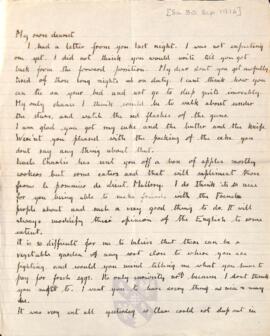 [Sa. 30 Sep 1916]
My own dearest
I had a letter from you last night. I was not expecting
one yet. I did not think you would write till you got
back from the forward position. My dear don't you get awfully
tired of those long nights on duty. I can't think how you
can lie on your bed and not go to sleep quite inevitably.
My only chance I think would be to walk about under
the stars, and watch the red flashes of the guns.
I am glad you got my cake and the butter and the knife.
Weren't you pleased with the packing of the cake you
don't say any thing about that.
Uncle Charlie has sent you off a box of apples mostly
cookers but some eaters and that will supplement those
from le pommier de Lieut. Mallory. I do think it is nice
for you being able to make friends with the French
people about and such a very good thing to do. It will
always modify their opinion of the English to some
extent.
It is so difficult for me to believe that there can be a
vegetable garden of any sort close to where you are
fighting and would you mind telling me what you have to
pay for fresh eggs. It's only curiosity not because I don't think
you ought to. I want you to have every thing as nice as may
be.
It was very wet all yesterday so Clare could not sleep out in